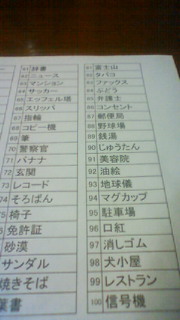 61 辞書
62 ニュース
63 マンション
64 サッカー
65 エッフェル塔
66 スリッパ
67 指輪
68 コピー機
69 筆
70 警察官
71 バナナ
72 玄関
73 レコード
74 そろばん
75 椅子
免許証
砂漠
サンダル
焼きそば
葉書
81 富士山
82 タバコ
83 ファックス
84 ぶどう
85 弁護士
86 コンセント
87 郵便局
88 野球場
89 銭湯
90 じゅうたん
91 美容院
92 油絵
93 地球儀
94 マグカップ
95 駐車場
96 口紅
97 消しゴム
98 犬小屋
99 レストラン
100 信号機